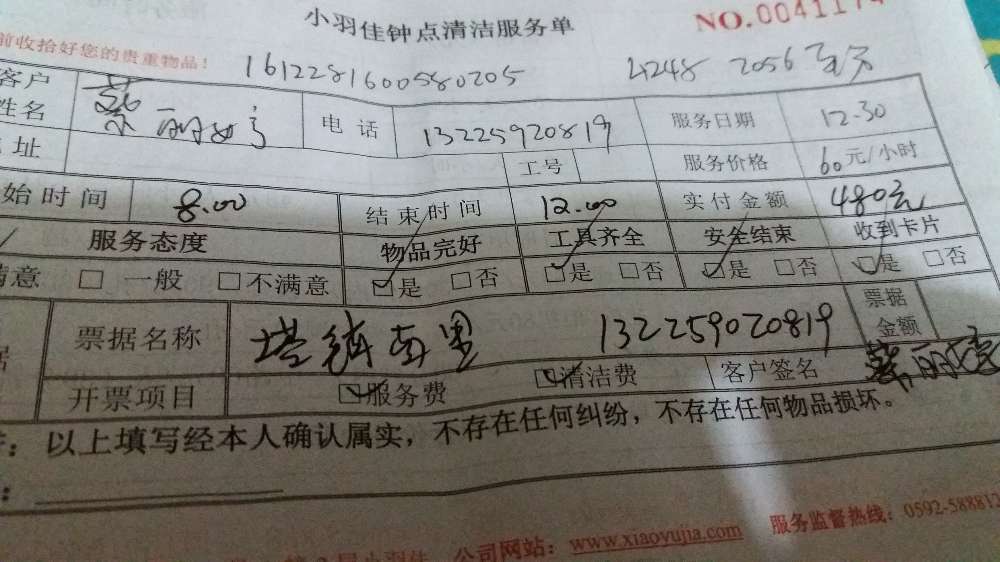 小羽佳钟点清洁服务单 NO.0041174
前收拾好您的贵重物品! 1612281600580205 4248 2056
客户姓名 蔡丽 电话 13225920819 服务日期 12.30
地址 工号 服务价格 60元/小时
始时间 8.00 结束时间 12.00 实付金额 480元
服务态度 物品完好 工具齐全 安全结束 收到卡片
满意 □一般 □不满意 ☑是 □否 ☑是 □否 ☑是 □否 ☑是 □否
票据名称 塔铺南里 132259020819 票据金额
开票项目 ☑服务费 ☑清洁费 客户签名 蔡丽
以上填写经本人确认属实，不存在任何纠纷，不存在任何物品损坏。
公司网站：www.xiaoyujia.com 服务监督热线：0592-588812